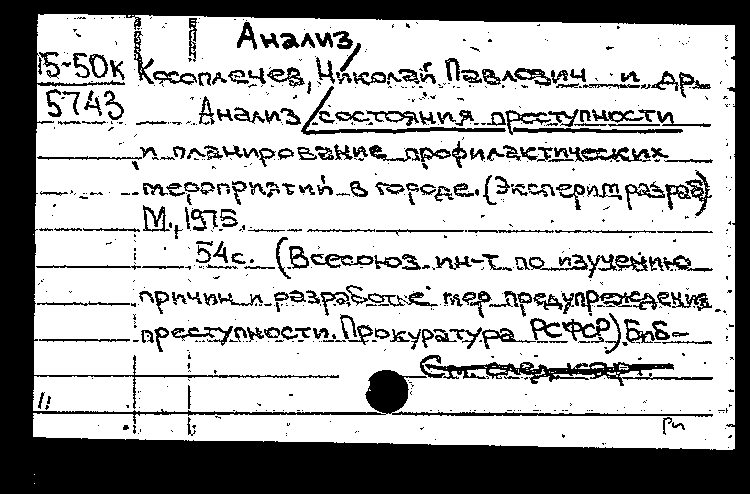 Анализ
15-50к Косоплечев, Николай Павлович и др.
5743 Анализ состояния преступности
и планирование профилактических
мероприятий в городе. (Эксперим. разраб.)
М., 1975.
54с. (Всесоюз. ин-т по изучению
причин и разработке мер предупреждения
преступности. Прокуратура РСФСР) Биб-
См. след. карт.